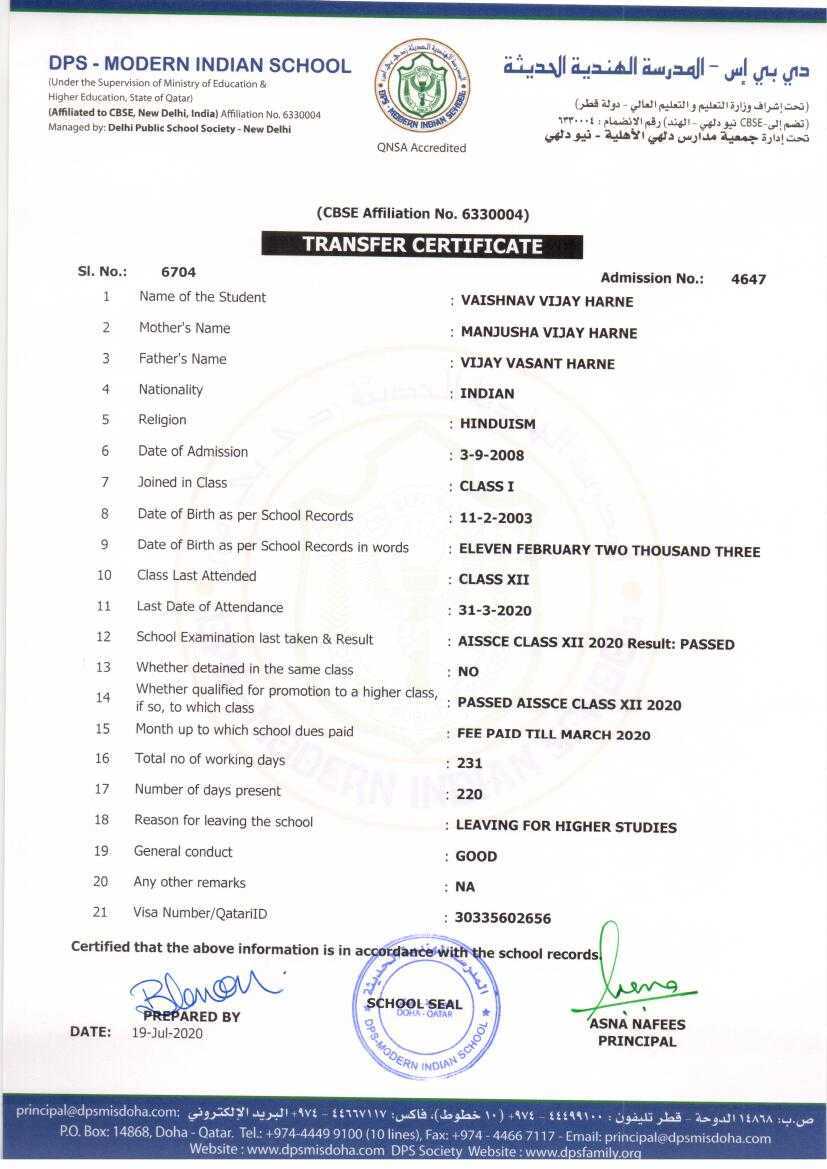 DPS - MODERN INDIAN SCHOOL
(Under the Supervision of Ministry of Education &
Higher Education, State of Qatar)
(Affiliated to CBSE, New Delhi, India) Affiliation No. 6330004
Managed by: Delhi Public School Society - New Delhi
DPS - MODERN INDIAN SCHOOL
QNSA Accredited
دي بي إس - المدرسة الهندية الحديثة
(تحت إشراف وزارة التعليم و التعليم العالي - دولة قطر)
(تضم إلى-CBSE نيو دلهي - الهند) رقم الانضمام : ٦٣٣٠٠٠٤
تحت إدارة جمعية مدارس دلهي الأهلية - نيو دلهي
(CBSE Affiliation No. 6330004)
TRANSFER CERTIFICATE
Sl. No.: 6704
Admission No.: 4647
1 Name of the Student : VAISHNAV VIJAY HARNE
2 Mother's Name : MANJUSHA VIJAY HARNE
3 Father's Name : VIJAY VASANT HARNE
4 Nationality : INDIAN
5 Religion : HINDUISM
6 Date of Admission : 3-9-2008
7 Joined in Class : CLASS I
8 Date of Birth as per School Records : 11-2-2003
9 Date of Birth as per School Records in words : ELEVEN FEBRUARY TWO THOUSAND THREE
10 Class Last Attended : CLASS XII
11 Last Date of Attendance : 31-3-2020
12 School Examination last taken & Result : AISSCE CLASS XII 2020 Result: PASSED
13 Whether detained in the same class : NO
14 Whether qualified for promotion to a higher class,
if so, to which class : PASSED AISSCE CLASS XII 2020
15 Month up to which school dues paid : FEE PAID TILL MARCH 2020
16 Total no of working days : 231
17 Number of days present : 220
18 Reason for leaving the school : LEAVING FOR HIGHER STUDIES
19 General conduct : GOOD
20 Any other remarks : NA
21 Visa Number/QatariID : 30335602656
Certified that the above information is in accordance with the school records.
PREPARED BY
DATE: 19-Jul-2020
المدرسة الهندية الحديثة
SCHOOL SEAL
DOHA - QATAR
DPS-MODERN INDIAN SCHOOL
ASNA NAFEES
PRINCIPAL
ص.ب: ١٤٨٦٨ الدوحة - قطر تليفون : ٤٤٤٩٩١٠٠ - ٩٧٤+ (١٠ خطوط)، فاكس: ٤٤٦٦٧١١٧ - ٩٧٤+ البريد الإلكتروني :principal@dpsmisdoha.com
P.O. Box: 14868, Doha - Qatar. Tel.: +974-4449 9100 (10 lines), Fax: +974 - 4466 7117 - Email: principal@dpsmisdoha.com
Website : www.dpsmisdoha.com DPS Society Website : www.dpsfamily.org